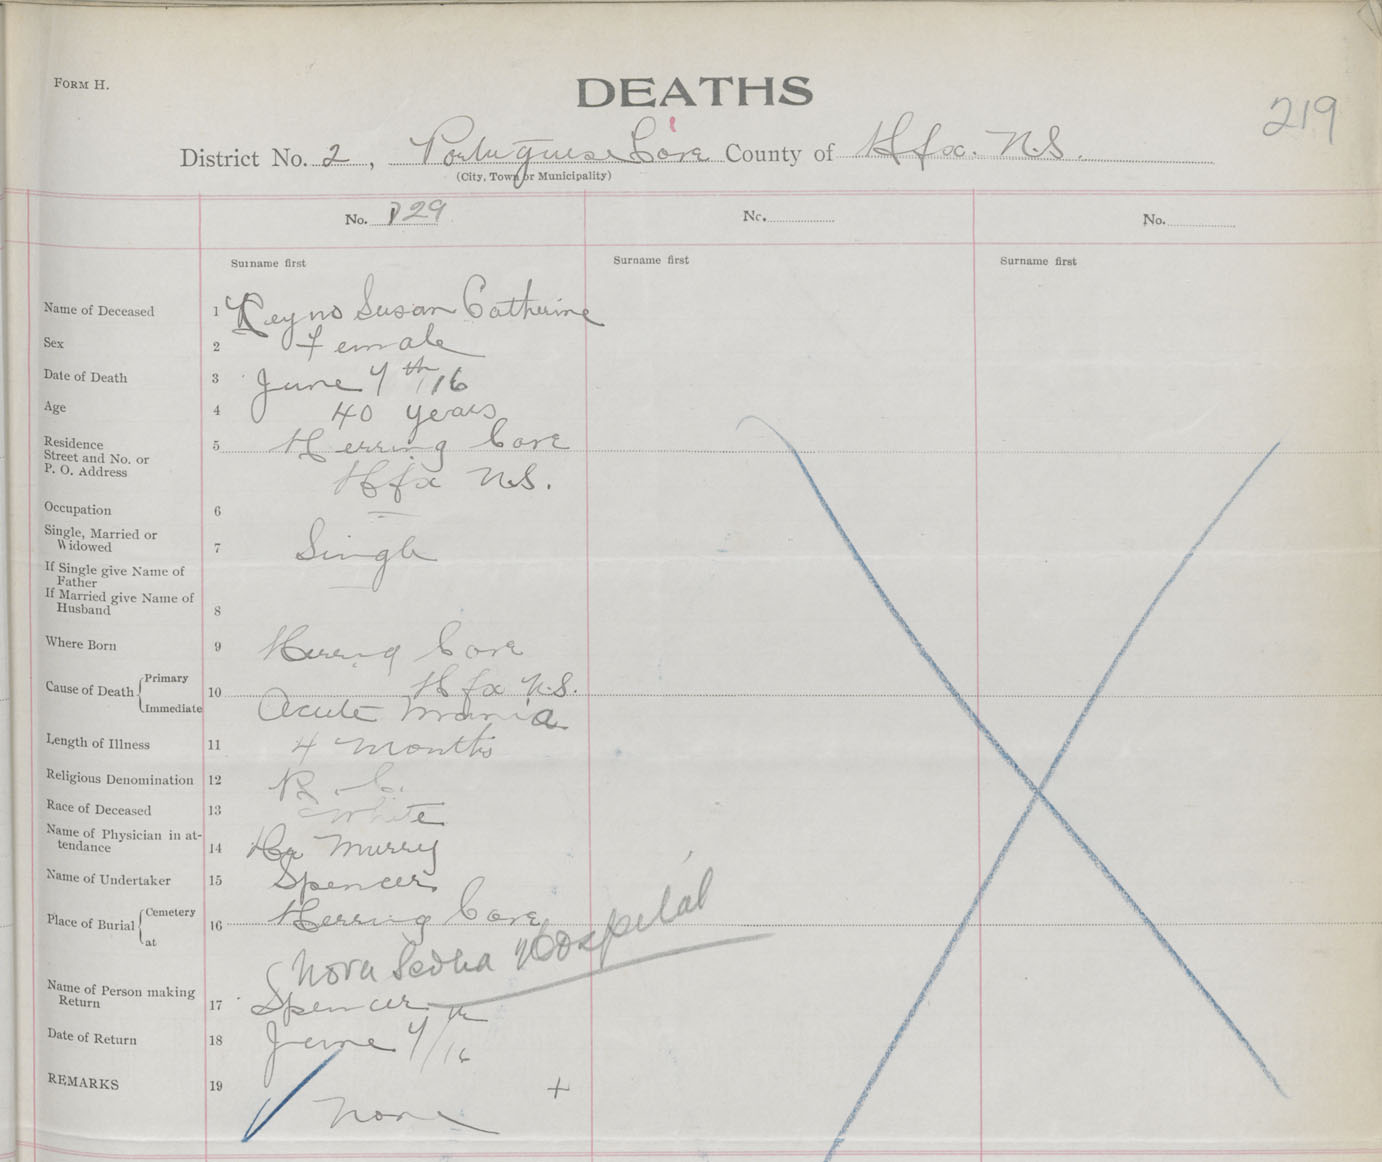 FORM H.
DEATHS
219
District No. 2, Portuguese Cove County of Hfx. N.S.
(City, Town or Municipality)
No. 729 No. No.
Surname first Surname first Surname first
Name of Deceased 1 Reyno Susan Catherine
Sex 2 Female
Date of Death 3 June 7th/16
Age 4 40 years
Residence 5 Herring Cove
Street and No. or
P. O. Address Hfx N.S.
Occupation 6 —
Single, Married or
Widowed 7 Single
If Single give Name of
Father —
If Married give Name of
Husband 8
Where Born 9 Herring Cove
Hfx N.S.
Cause of Death { Primary 10
Immediate Acute Mania
Length of Illness 11 4 Months
Religious Denomination 12 R.C.
Race of Deceased 13 White
Name of Physician in at-
tendance 14 Murry
Name of Undertaker 15 Spencer
Place of Burial { Cemetery 16 Herring Cove
at
Nova Scotia Hospital
Name of Person making
Return 17 Spencer
Date of Return 18 June 7th/16
REMARKS 19 +
None